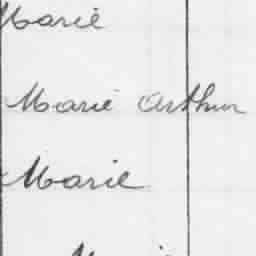 Marie
Marie Arthur
Marie